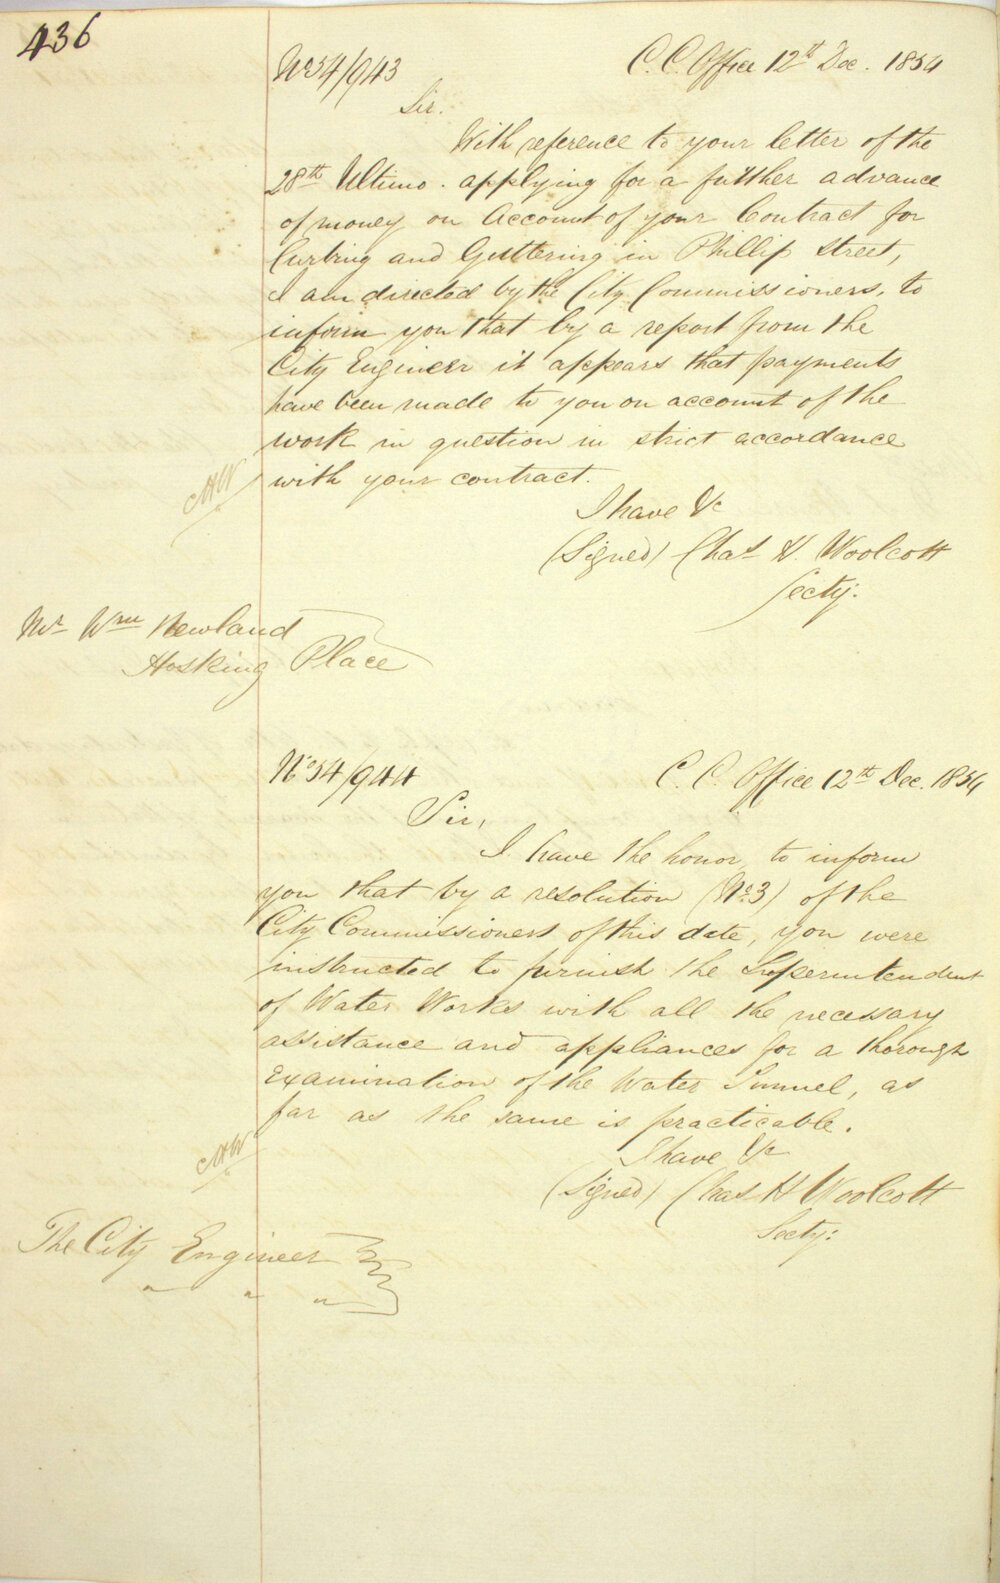 436
No 54/943 C.C. Office 12th Dec. 1854
Sir.
With reference to your letter of the
28th Ultimo. applying for a further advance
of money on Account of your Contract for
Curbing and Guttering in Phillip Street,
I am directed by the City Commissioners, to
inform you that by a report from the
City Engineer it appears that payments
have been made to you on account of the
work in question in strict accordance
with your contract.
CHW
I have &c
(Signed) Chas H. Woolcott
Secty:
Mr Wm Newland
Hosking Place
No 54/944 C.C. Office 12th Dec. 1854
Sir,
I have the honor, to inform
you that by a resolution (No. 3) of the
City Commissioners of this date, you were
instructed to furnish the Superintendent
of Water Works with all the necessary
assistance and appliances for a thorough
Examination of the Water Tunnel, as
far as the same is practicable.
I have &c
CHW
(Signed) Chas H Woolcott
Secty:
The City Engineer
" " "